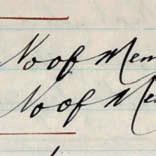 No of Mem
No of Me